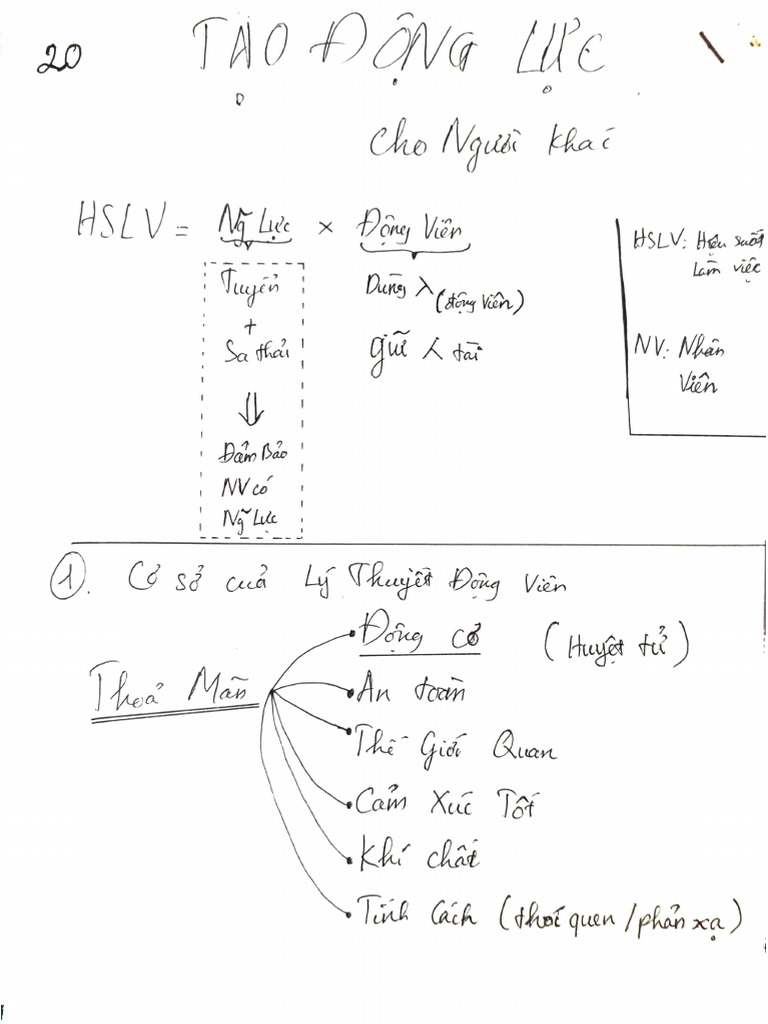 20
TẠO ĐỘNG LỰC
cho Người khác
HSLV = Ng̃ Lực × Động Viên
Tuyển
+
Sa thải
⇓
Đảm Bảo
NV có
Ng̃ Lực
Dùng λ (động viên)
giữ λ tài
HSLV: Hiệu suất
làm việc
NV: Nhân
Viên
①. Cơ sở của Lý Thuyết Động Viên
Thoả Mãn
Động cơ (Huyệt tử)
An toàn
Thế Giới Quan
Cảm Xúc Tốt
Khí chất
Tính Cách (thói quen / phản xạ)